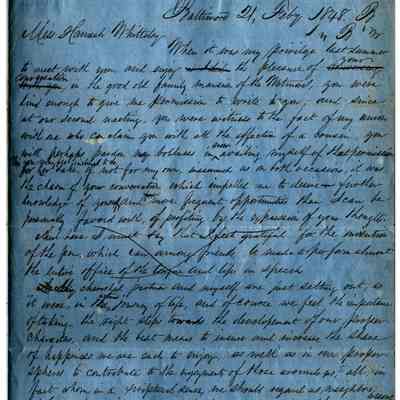 Baltimore 21, Feby 1848. B
Miss Hannah Whittesly
When it was my privilege last summer
to meet with you and enjoy the pleasure of your
conversation, in the good old family mansion of the Metcalfs, you were
kind enough to give me permission to write to you, and since
at our second meeting you were witness to the fact of my union
with one who can claim you with all the affection of a cousin, you
will perhaps pardon my boldness in now availing myself of that permission
for the sake, if not for my own, inasmuch as on both occasions, it was
the charm of your conversation, which impelled me to desire a further
knowledge of yourself and more frequent opportunities than I can be
personally favored with, of profiting by the expression of your thoughts.
And here I must say that I feel grateful for the invention
of the pen, which can among friends, be made to perform almost
the entire office of the tongue and lips in speech
My cherished partner and myself are just setting out, as
it were, in the journey of life, and of course we feel the importance
of taking the right steps towards the development of our proper
character, and the best means to insure and increase the share
of happiness we are each to enjoy, as well as in our proper
sphere to contribute to the enjoyment of those around us, all in
fact whom in a scriptural sense, we should regard as neighbors